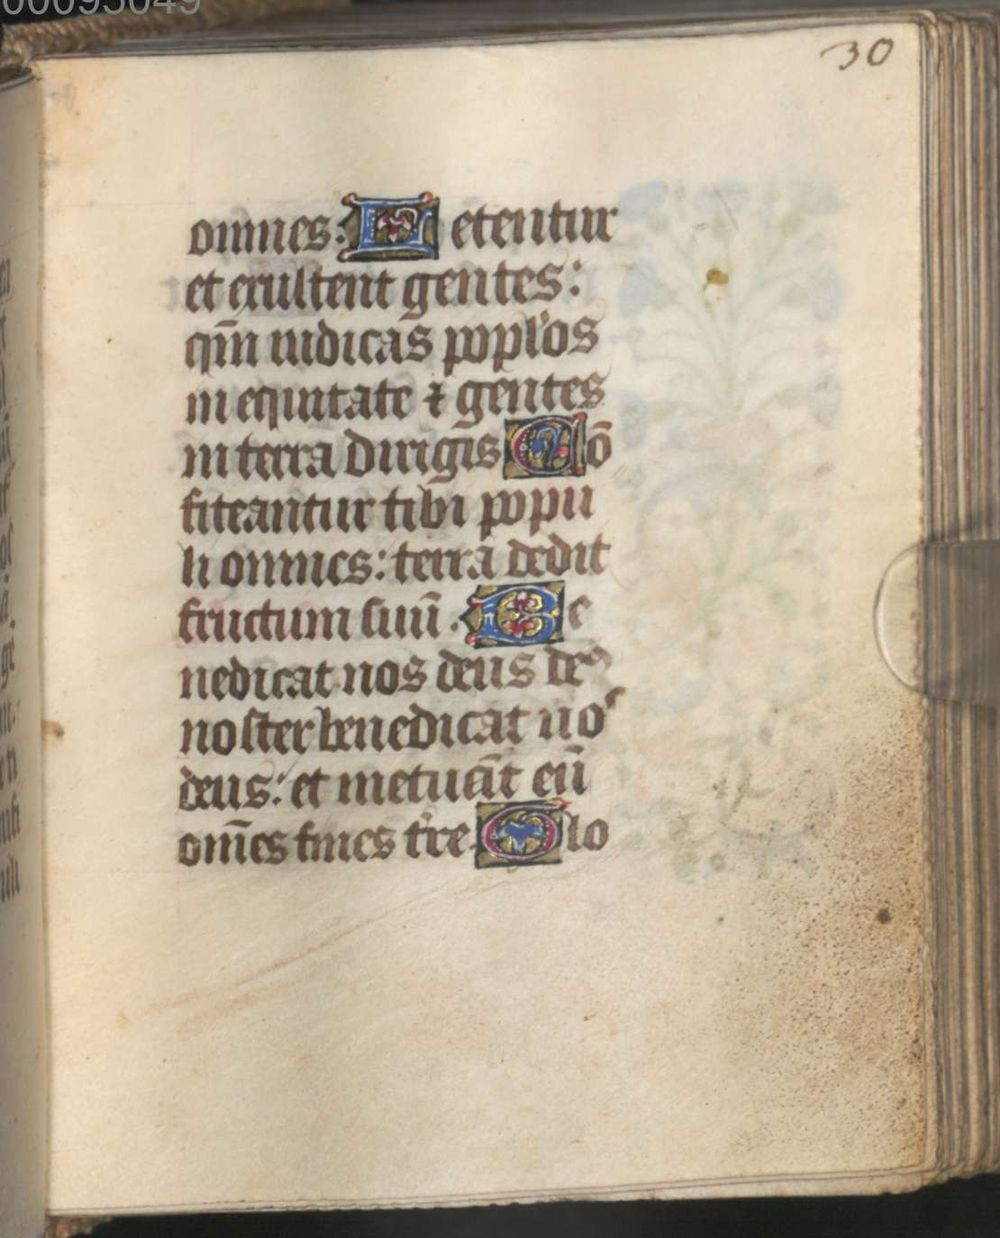 00095049
30
omnes: Letentur
et exultent gentes:
qm̄ iudicas popl'os
in equitate ⁊ gentes
in terra dirigis Cō
fiteantur tibi popu
li omnes: terra dedit
fructum suū. Be
nedicat nos deus deꝰ
noster benedicat no s
deus: et metuāt eū
om̄es fines tr̄e. Glo